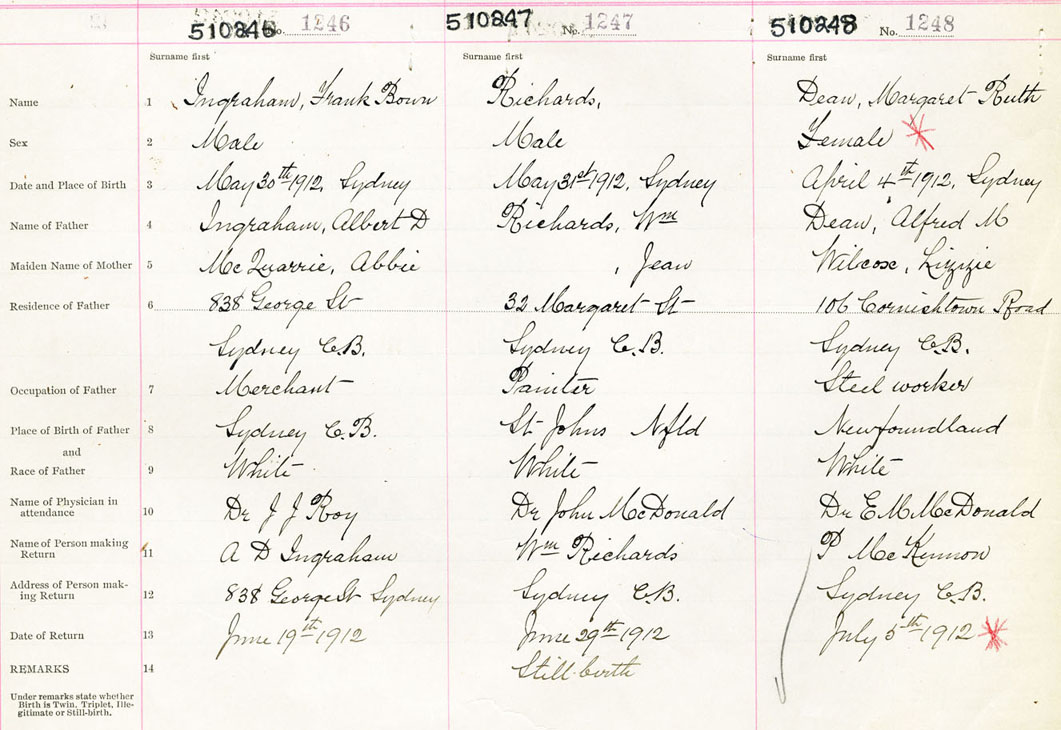 510246 No. 1246 510247 No. 1247 510248 No. 1248
Surname first Surname first Surname first
Name 1 Ingraham, Frank Bown Richards, Dean, Margaret Ruth
Sex 2 Male Male Female
Date and Place of Birth 3 May 30th 1912, Sydney May 31st 1912, Sydney April 4th 1912, Sydney
Name of Father 4 Ingraham, Albert D Richards, Wm Dean, Alfred M
Maiden Name of Mother 5 McQuarrie, Abbie , Jean Wilcox, Lizzie
Residence of Father 6 838 George St 32 Margaret St 106 Cornishtown Road
Sydney C.B. Sydney C.B. Sydney C.B.
Occupation of Father 7 Merchant Painter Steel worker
Place of Birth of Father 8 Sydney C.B. St Johns Nfld Newfoundland
and
Race of Father 9 White White White
Name of Physician in
attendance 10 Dr J J Roy Dr John McDonald Dr E M McDonald
Name of Person making
Return 11 A D Ingraham Wm Richards P McKennon
Address of Person mak-
ing Return 12 838 George St Sydney Sydney C.B. Sydney C.B.
Date of Return 13 June 19th 1912 June 29th 1912 July 5th 1912
REMARKS 14 Still-birth
Under remarks state whether
Birth is Twin, Triplet, Ille-
gitimate or Still-birth.